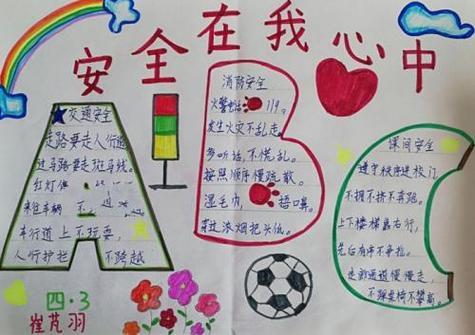 安全在我心中
交通安全
走路要走人行道
过马路要走斑马线。
红灯停
来往车辆
车行道上不玩耍,
人行护栏 不跨越
消防安全
火警电话 119。
发生火灾不乱走,
多听话,不慌乱。
按照顺序慢疏散。
湿毛巾, 捂口鼻。
穿过浓烟把头低。
课间安全
遵守秩序进校门,
不拥不挤不奔跑。
上下楼梯靠右行,
先后有序不争抢。
走廊通道慢慢走,
不踩桌椅不攀高。
四·3
崔芃羽